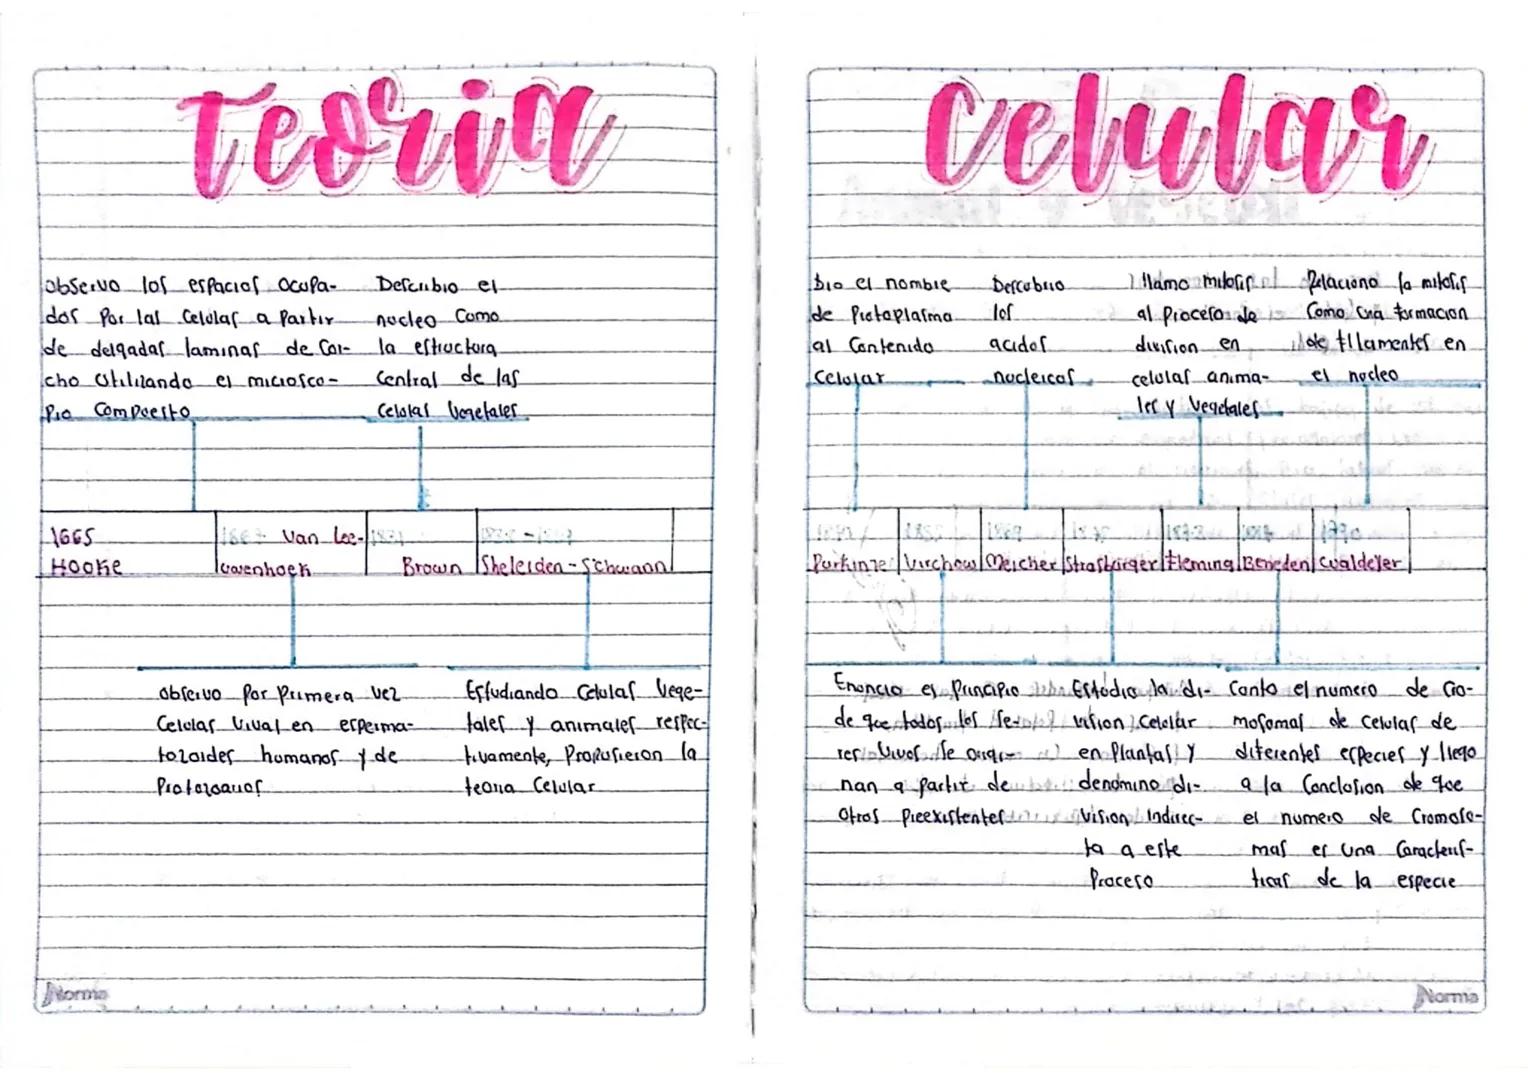 Teoria
Observo los espacios ocupa-
dos Por las Celulas a Partir
de delgadas laminas de Cor-
cho Utilizando el microsco-
Pio Compuesto
Descubrio el
nucleo Como
la estructura
Central de las
Celulas Vegetales
1665
HOOKe
Van Lee-
uwenhoek
1831
Brown
Sheleiden-Schwann
Observo Por Primera vez
Celulas Vivas en esperma-
tozoides humanos y de
Protozoarios
Estudiando Celulas Vege-
tales y animales respec-
tivamente, Propusieron la
teoria Celular
Norma
Celular
Dio el nombre
de Protoplasma
al Contenido
Celular
Descubrio
los
acidos
nucleicos
llamo mitosis
al Proceso de
division en
celulas anima-
les y Vegetales
Relaciono la mitosis
Como una formacion
de filamentos en
el nucleo
Purkinze Virchow Meicher Strasburger Fleming Beneden Cualdeyer
Enuncio es Principio
de que todos los se-
res Vivos se origi-
nan a Partir de
Otros Preexistentes
Estudio la di-
vision Celular
en Plantas y
denomino di-
vision Indirec-
ta a este
Proceso
Conto el numero de Cro-
mosomas de Celulas de
diferentes especies y llego
a la Conclusion de que
el numero de Cromoso-
mas es una Caracteris-
ticas de la especie
Norma